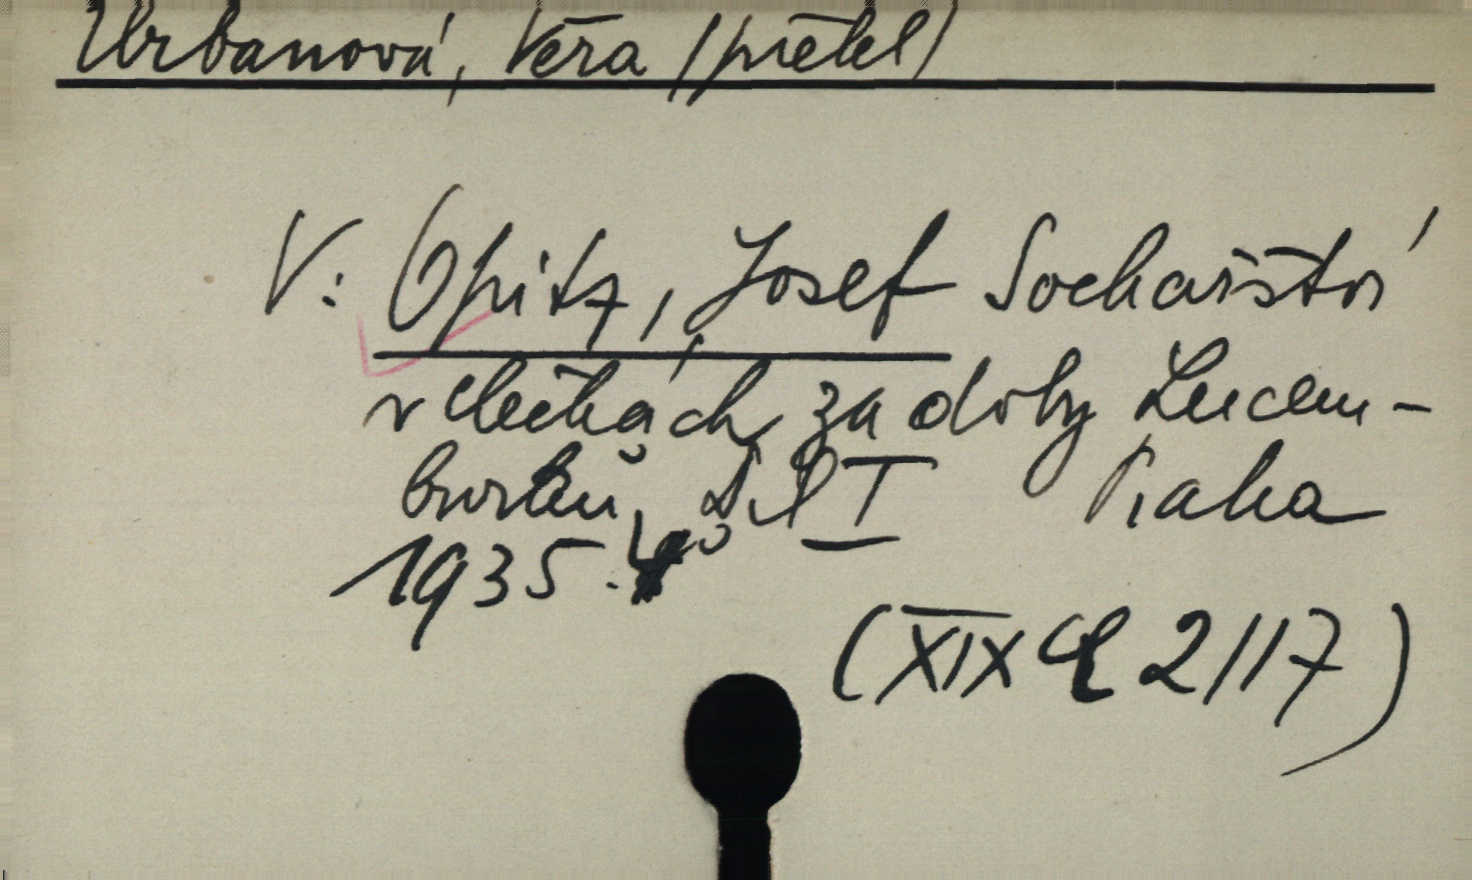 Urbanová, Věra (přítel)
V: Opitz, Josef Sochařství
v Čechách za doby Lucem-
burků, Díl I Praha
1935. 4°
(XIX 2/17)